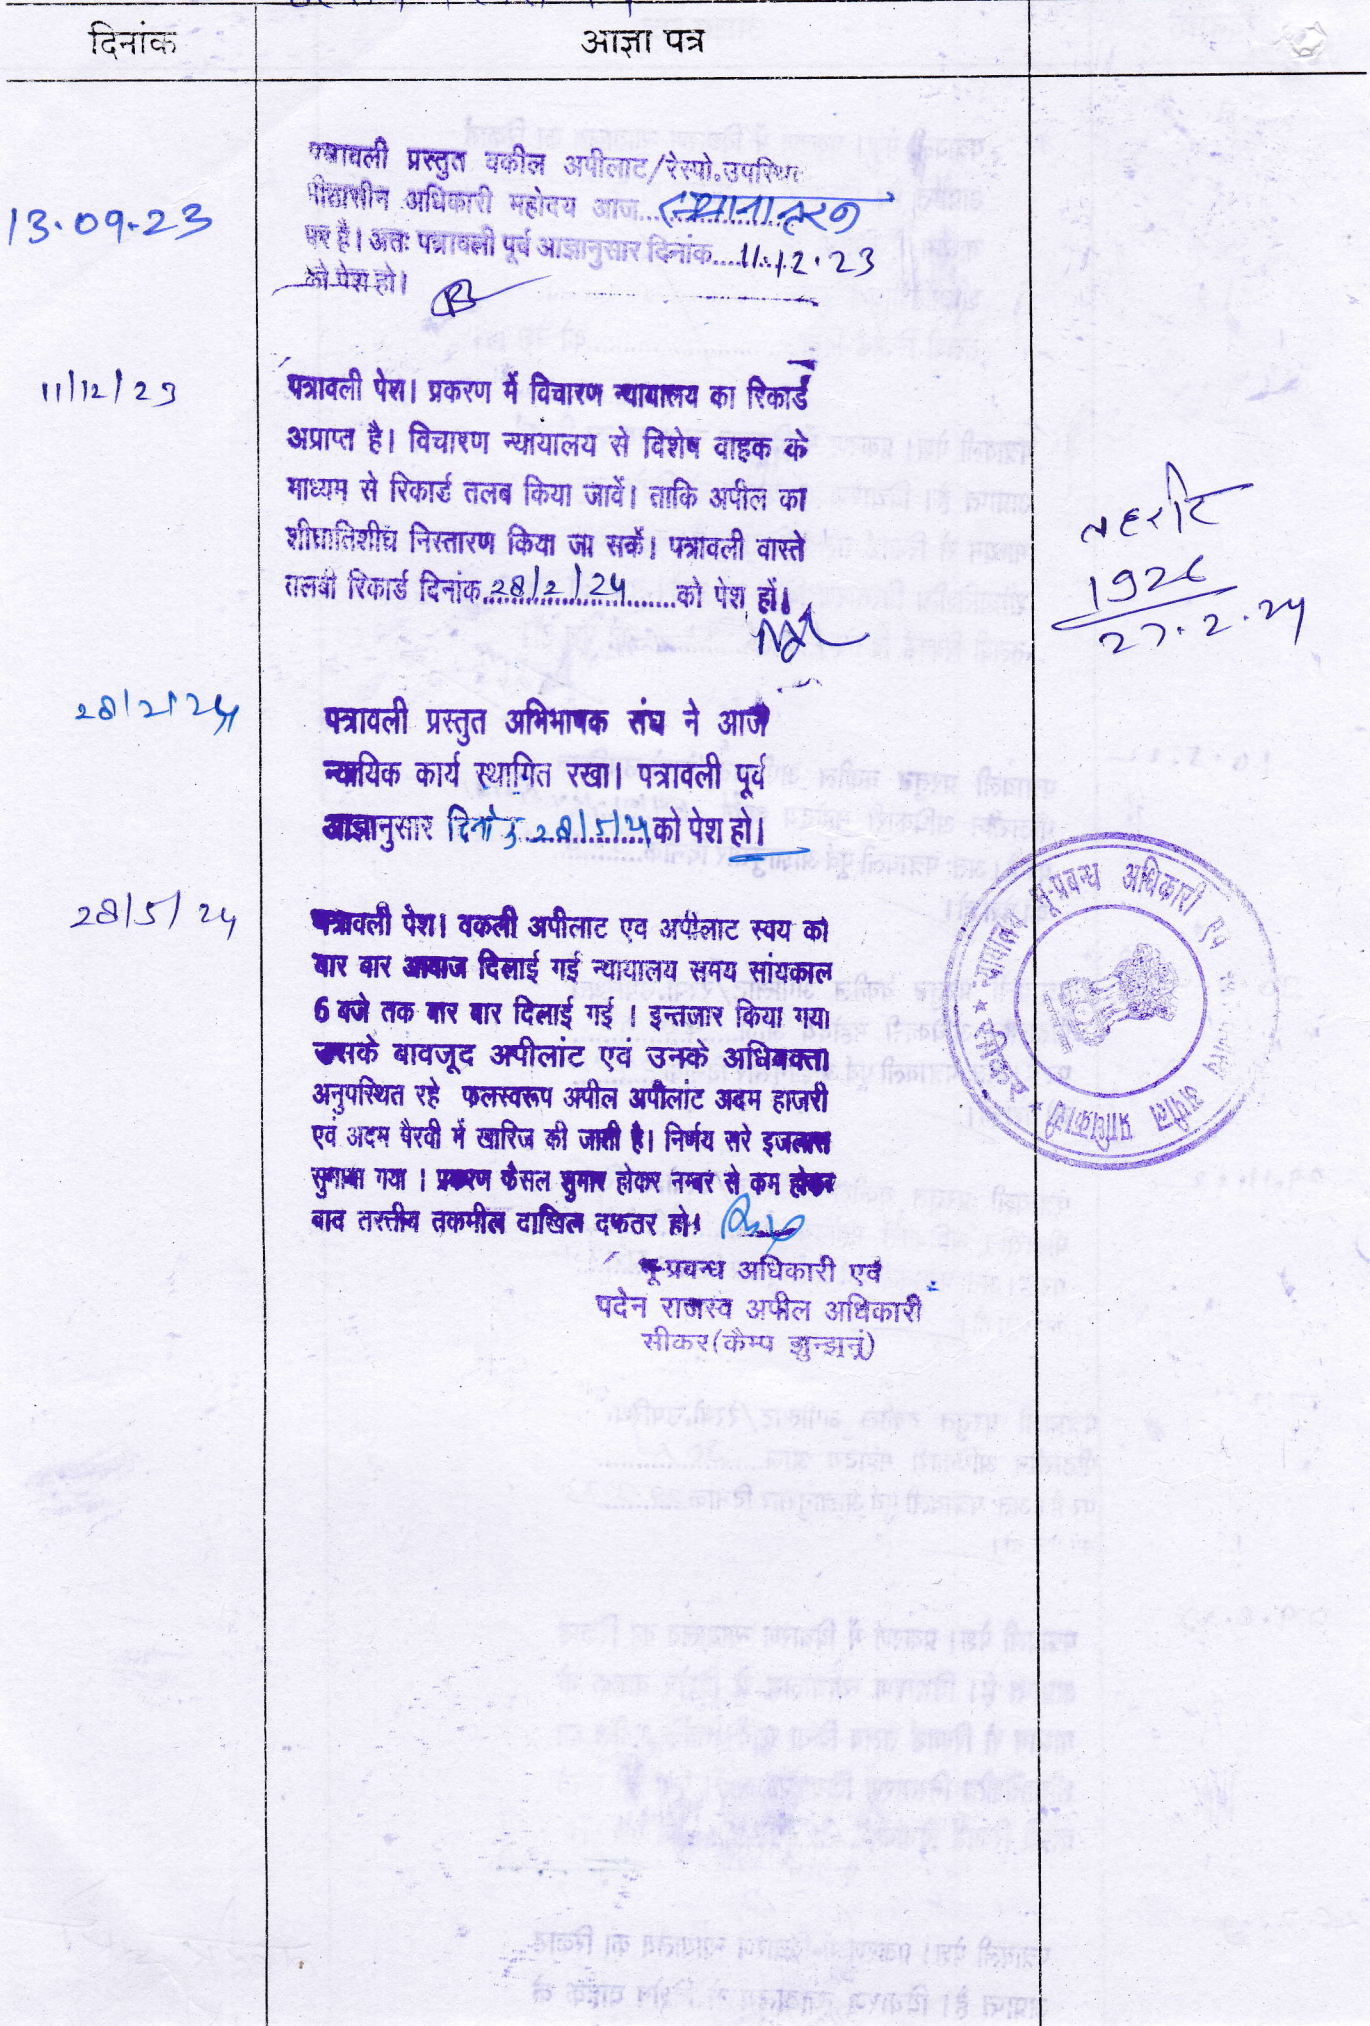 दिनांक
आज्ञा पत्र
पत्रावली प्रस्तुत वकील अपीलाट/रेस्पो.उपस्थित
13.09.23
पीठासीन अधिकारी महोदय आज..............
पर है। अतः पत्रावली पूर्व आज्ञानुसार दिनांक....11.12.23
को पेश हो।
11/12/23
पत्रावली पेश। प्रकरण में विचारण न्यायालय का रिकार्ड
अप्राप्त है। विचारण न्यायालय से विशेष वाहक के
माध्यम से रिकार्ड तलब किया जावें। ताकि अपील का
शीघ्रातिशीघ्र निस्तारण किया जा सकें। पत्रावली वास्ते
तलबी रिकार्ड दिनांक..28/2/24..को पेश हों।
तहरीर
1926
27.2.24
28/2/24
पत्रावली प्रस्तुत अभिभाषक संघ ने आज
न्यायिक कार्य स्थागित रखा। पत्रावली पूर्व
आज्ञानुसार दिनांक 28/5/24 को पेश हो।
28/5/24
पत्रावली पेश। वकली अपीलाट एव अपीलाट स्वय को
बार बार आवाज दिलाई गई न्यायालय समय सांयकाल
6 बजे तक बार बार दिलाई गई । इन्तजार किया गया
उसके बावजूद अपीलांट एवं उनके अधिवक्ता
अनुपस्थित रहे फलस्वरूप अपील अपीलांट अदम हाजरी
एवं अदम पैरवी में खारिज की जाती है। निर्णय सरे इजलास
सुनाया गया । प्रकरण फैसल शुमार होकर नम्बर से कम होकर
बाद तरतीव तकमील दाखिल दफतर हो।
भू-प्रबन्ध अधिकारी एवं
पदेन राजस्व अपील अधिकारी
सीकर(कैम्प झुन्झुनूं)
न्यायालय भू-प्रबन्ध अधिकारी एवं
अपील प्राधिकारी
सीकर